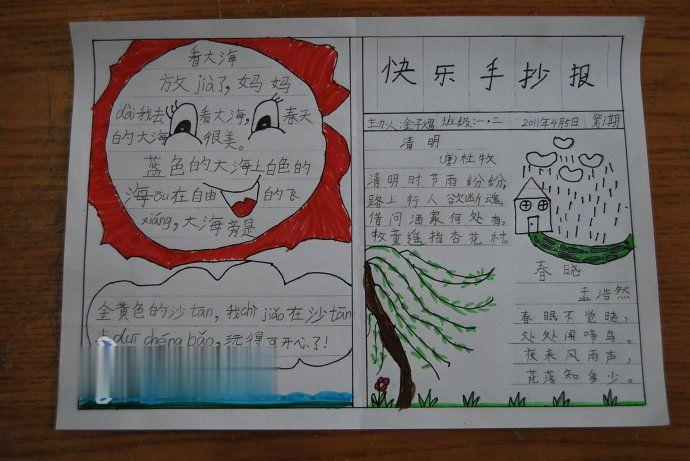 看大海
放jià了,妈妈
dài我去看大海,春天
的大海很美。
蓝色的大海上白色的
海ōu在自由的飞
xiáng,大海旁是
金黄色的沙tān,我chì jiǎo在沙tān
duī chéng bǎo,玩得可开心了!
快乐手抄报
主办人:金子熠 班级:一·二 2011年4月5日 第1期
清明
(唐)杜牧
清明时节雨纷纷,
路上行人欲断魂。
借问酒家何处有,
牧童遥指杏花村。
春晓
孟浩然
春眠不觉晓,
处处闻啼鸟。
夜来风雨声,
花落知多少。